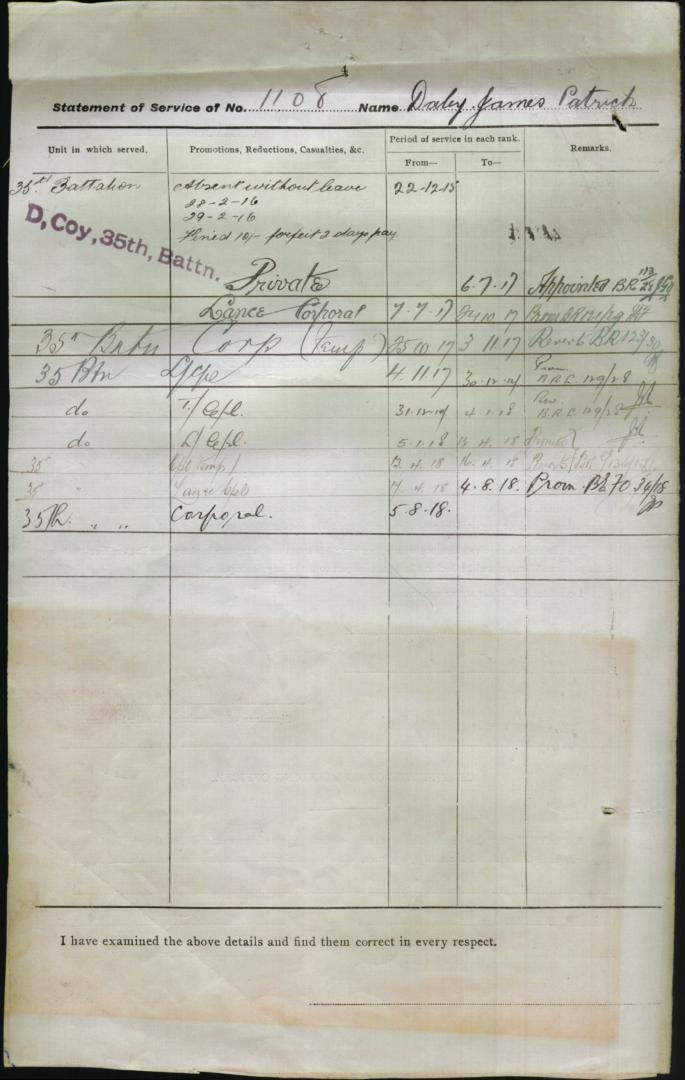 4
Statement of Service of No. 1108 Name Daley James Patrick
Unit in which served. Promotions, Reductions, Casualties, &c. Period of service in each rank. Remarks.
From— To—
35th Battalion Absent without leave 22-12-15
28-2-16
29-2-16
Fined 10/- forfeit 2 days pay
D, Coy, 35th, Battn.
Private 6.7.17 Appointed BR 113
Lance Corporal 7.7.17 24 10 17
35th Batn Corp (Temp) 25 10 17 3 11 17 Revert BR 123/30
35 Btn L/Cpe 4.11.17 30.12.17 Prom. B.R.E. 129/28
do T/Cpl. 31.12.17 4.1.18 Rev. B.R.E. 129/28
do L/Cpl. 5.1.18 12.4.18
35 Cpl Temp/ 13.4.18 16.4.18
35 " Lance Cpl 17 4.18 4.8.18. Prom. 70 34/18
35th. " " Corporal. 5-8-18.
I have examined the above details and find them correct in every respect.